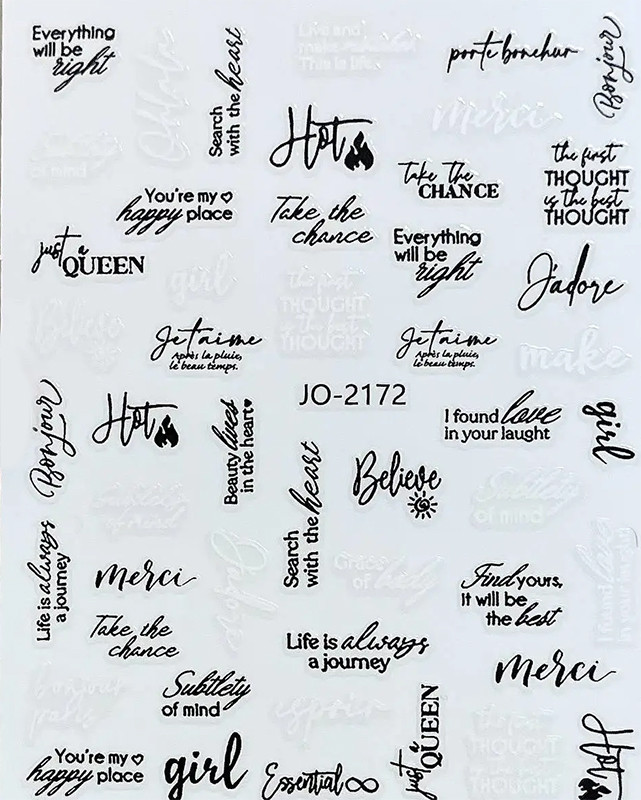 Everything
will be
right
Ohlala
Search
with the heart
Live and
make
This is life
porte bonehur
Bonjour
merci
Hot
take the
CHANCE
the first
THOUGHT
is the best
THOUGHT
of mind
You're my
happy place
Take the
chance
just a
QUEEN
Everything
will be
right
J'adore
girl
the first
THOUGHT
is the best
THOUGHT
Believe
Je t'aime
Après la pluie,
le beau temps.
Je t'aime
Après la pluie,
le beau temps.
make
JO-2172
Bonjour
Hot
Beauty lives
in the heart
I found love
in your laught
girl
Search
with the heart
Believe
Subtlety
of mind
Subtlety
of mind
Life is always
a journey
merci
J'adore
Grace
of lady
Find yours,
It will be
the best
I found love
in your laught
Take the
chance
Life is always
a journey
merci
Bonjour
paris
Subtlety
of mind
espoir
just a
QUEEN
the first
THOUGHT
is the best
THOUGHT
Hot
You're my
happy place
girl
Essential